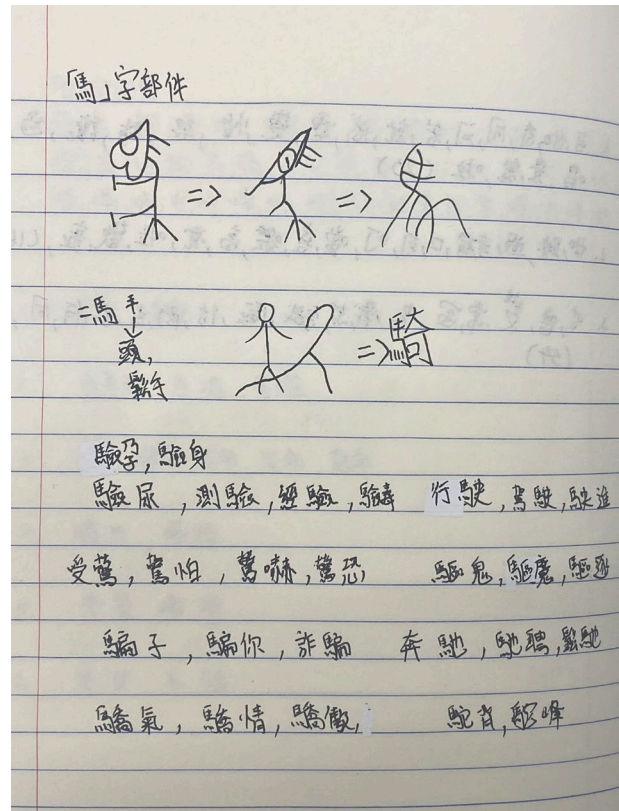 「馬」字部件
=> =>
=馬 頭, 鬆手
=>騎
驗孕,驗身
驗尿,測驗,經驗,驗毒 行駛,駕駛,駛進
受驚,驚怕,驚嚇,驚恐 驅鬼,驅魔,驅逐
騙子,騙你,詐騙 奔馳,馳騁,鬆馳
驕氣,驕情,驕傲, 駝背,駝峰